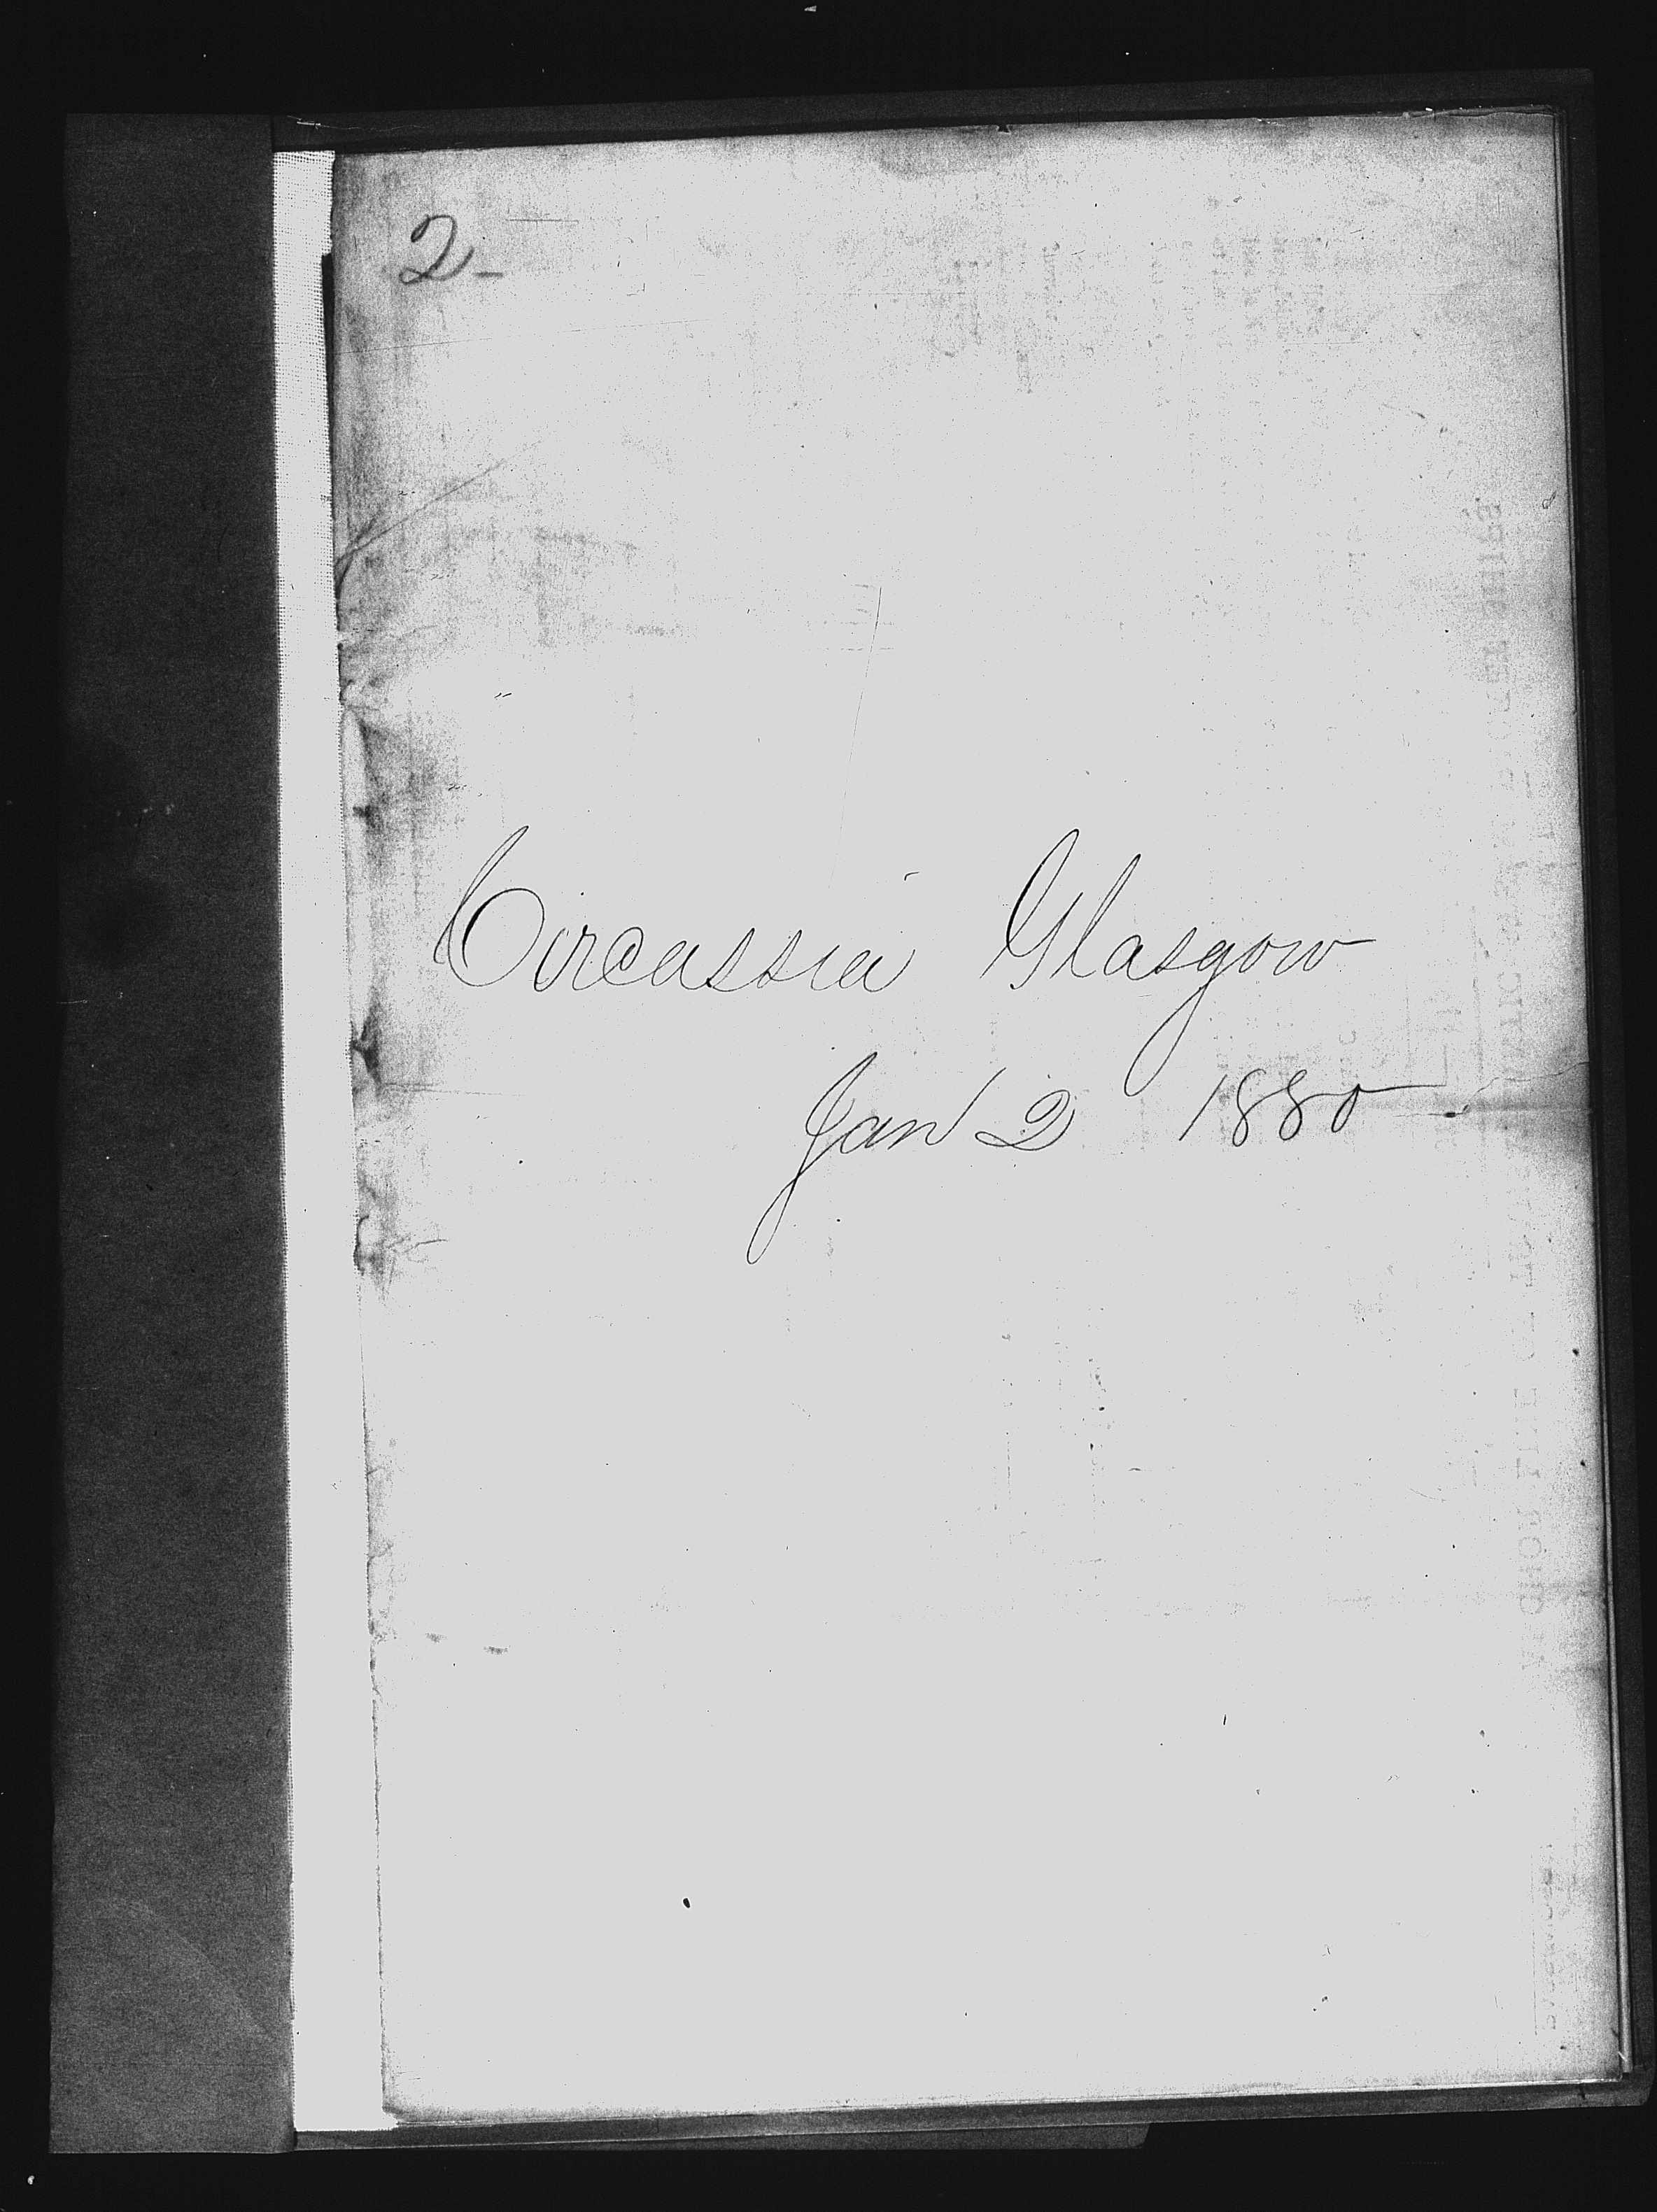 2-
Circassia Glasgow
Jan 2 1880